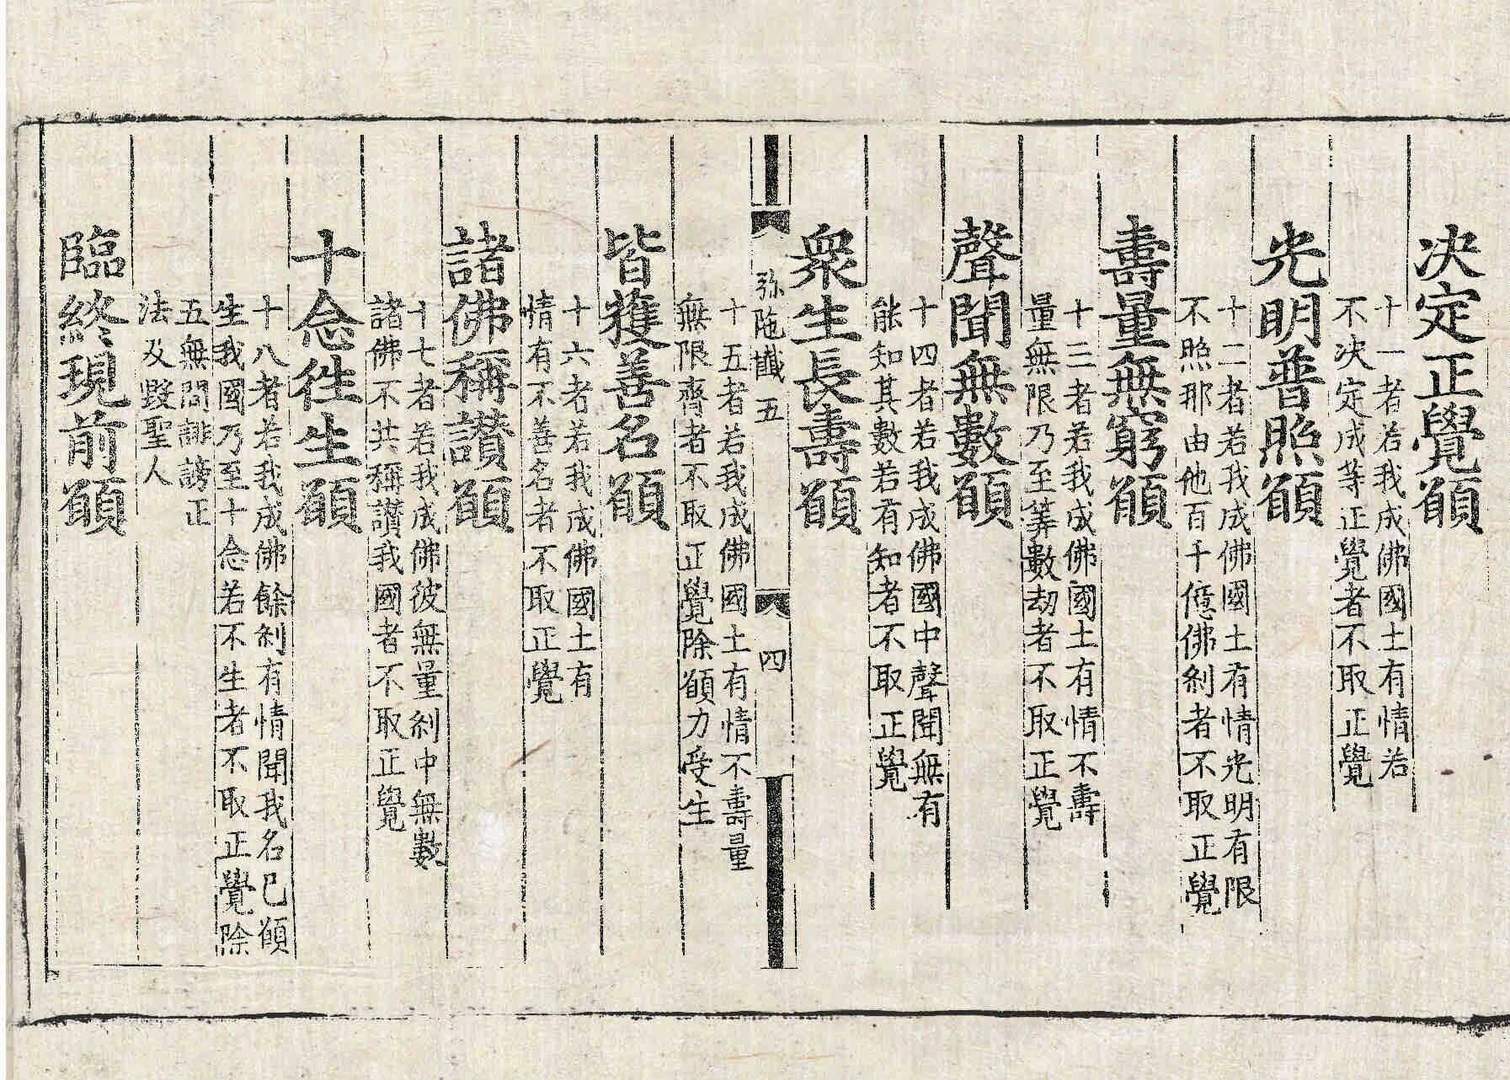 决定正覺願
十一者若我成佛國土有情若
不决定成等正覺者不取正覺
光明普照願
十二者若我成佛國土有情光明有限
不照那由他百千億佛刹者不取正覺
壽量無窮願
十三者若我成佛國土有情不壽
量無限乃至筭數劫者不取正覺
聲聞無數願
十四者若我成佛國中聲聞無有
能知其數若有知者不取正覺
衆生長壽願
弥陁懺五
四
十五者若我成佛國土有情不壽量
無限齊者不取正覺除願力受生
皆獲善名願
十六者若我成佛國土有
情有不善名者不取正覺
諸佛稱讃願
十七者若我成佛彼無量刹中無數
諸佛不共稱讃我國者不取正覺
十念徃生願
十八者若我成佛餘刹有情聞我名已願
生我國乃至十念若不生者不取正覺除
五無間誹謗正
法及毀聖人
臨終現前願